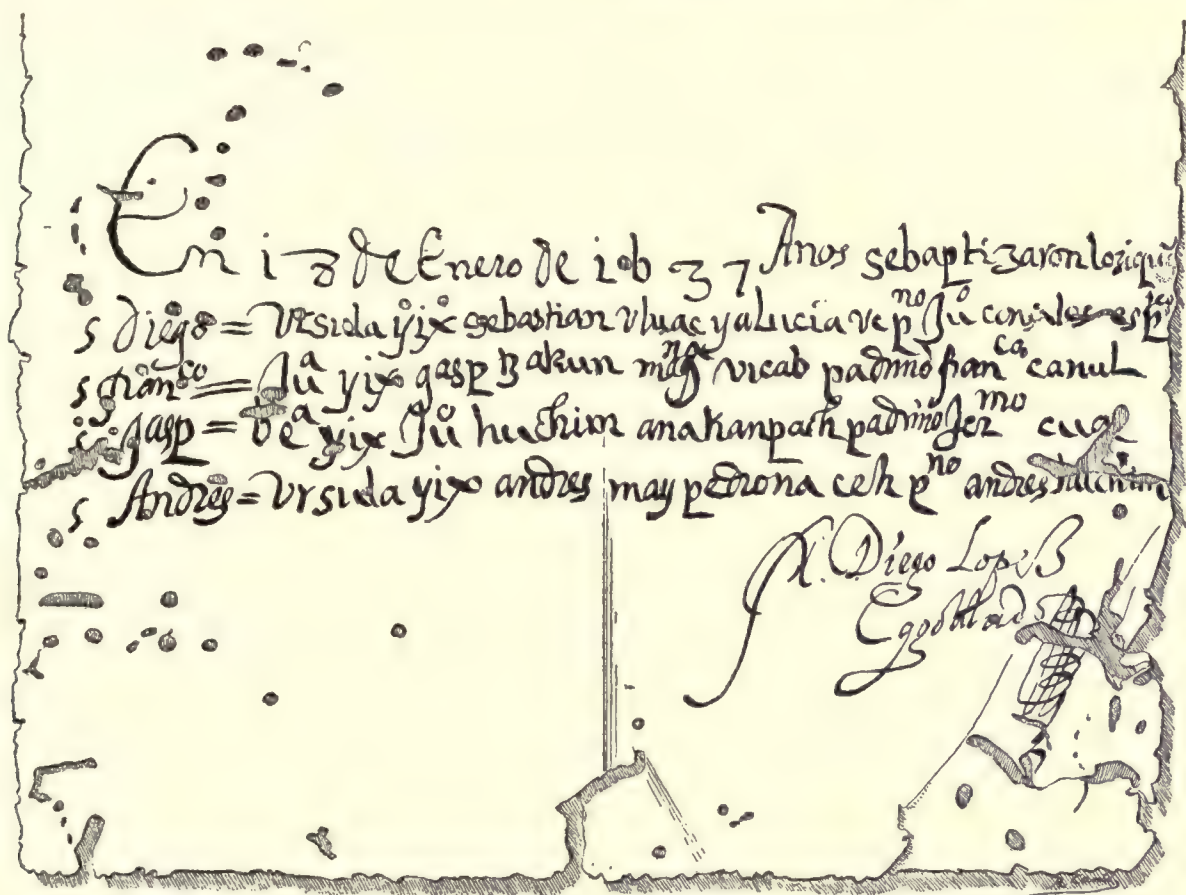 En 18 de Enero de 1637 Años sebaptizaron losiqu
s diego = Vrsula yix sebastian vluac ya Lucia vc pno Juo consales espco
s franco = Jua yix gasp tzakun vicab padrino franco canul
gasp = yix Juo huchim ana kanpach padrino Jermo
s Andres = Vrsula yix andres may pedrona ceh pno andres
Diego Lopez